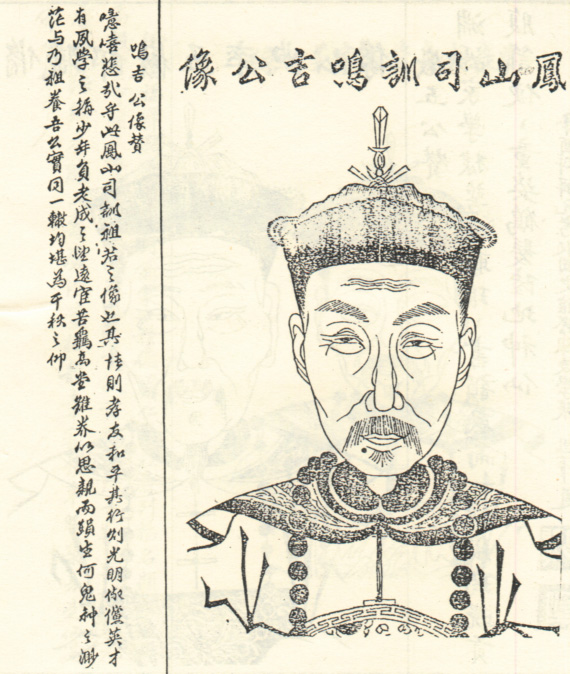 鳳山司訓鳴吉公像
鳴吉公像贊
噫嘻悲哉乎此鳳山司訓祖若之像也其性則孝友和平其行則光明倜儻英才
有夙學之稱少年負老成之望遠宦苦羈高堂難養以思親而隕生何鬼神之渺
茫与乃祖養吾公實同一轍均堪為千秋之仰